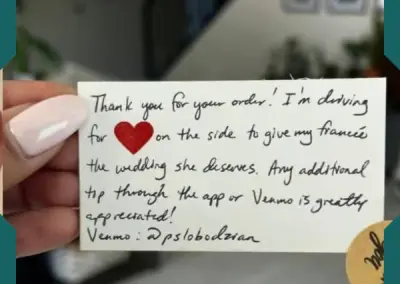 Thank you for your order! I'm driving
for ❤ on the side to give my fiancée
the wedding she deserves. Any additional
tip through the app or Venmo is greatly
appreciated!
Venmo: @pslobodzian
you